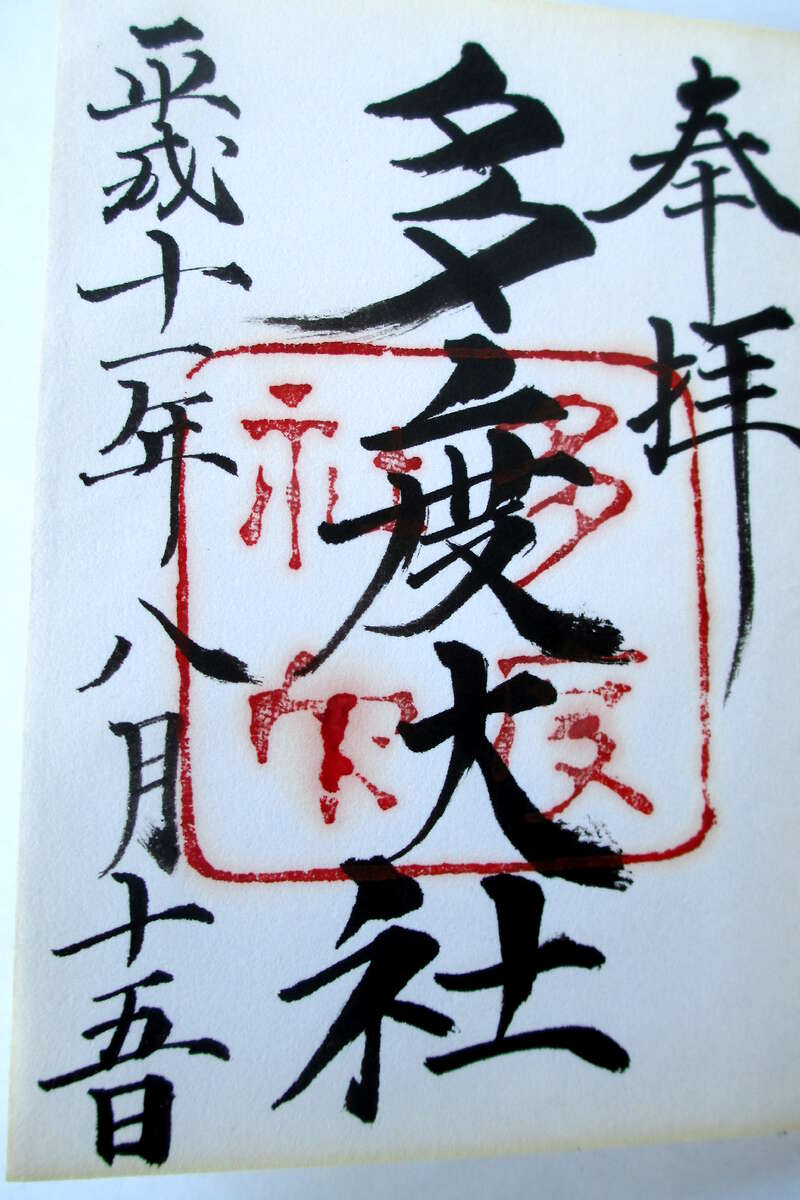 奉拝
多度大社
平成十一年八月十五日
多度
社印